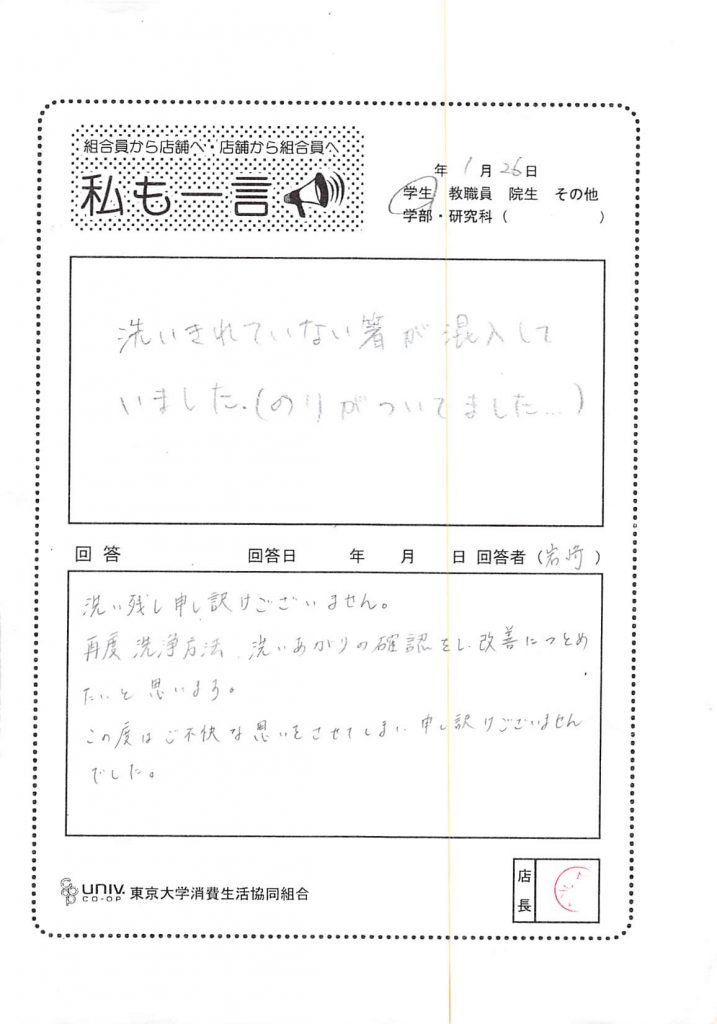 組合員から店舗へ・店舗から組合員へ
私も一言
年 1月 26日
学生 教職員 院生 その他
学部・研究科（ ）
洗いきれていない箸が混入して
いました.(のりがついてました…)
回答 回答日 年 月 日 回答者（岩崎）
洗い残し申し訳けございません。
再度 洗浄方法、洗いあがりの確認をし、改善につとめ
たいと思います。
この度はご不快な思いをさせてしまい、申し訳けございません
でした。
coop univ. CO-OP 東京大学消費生活協同組合
店長